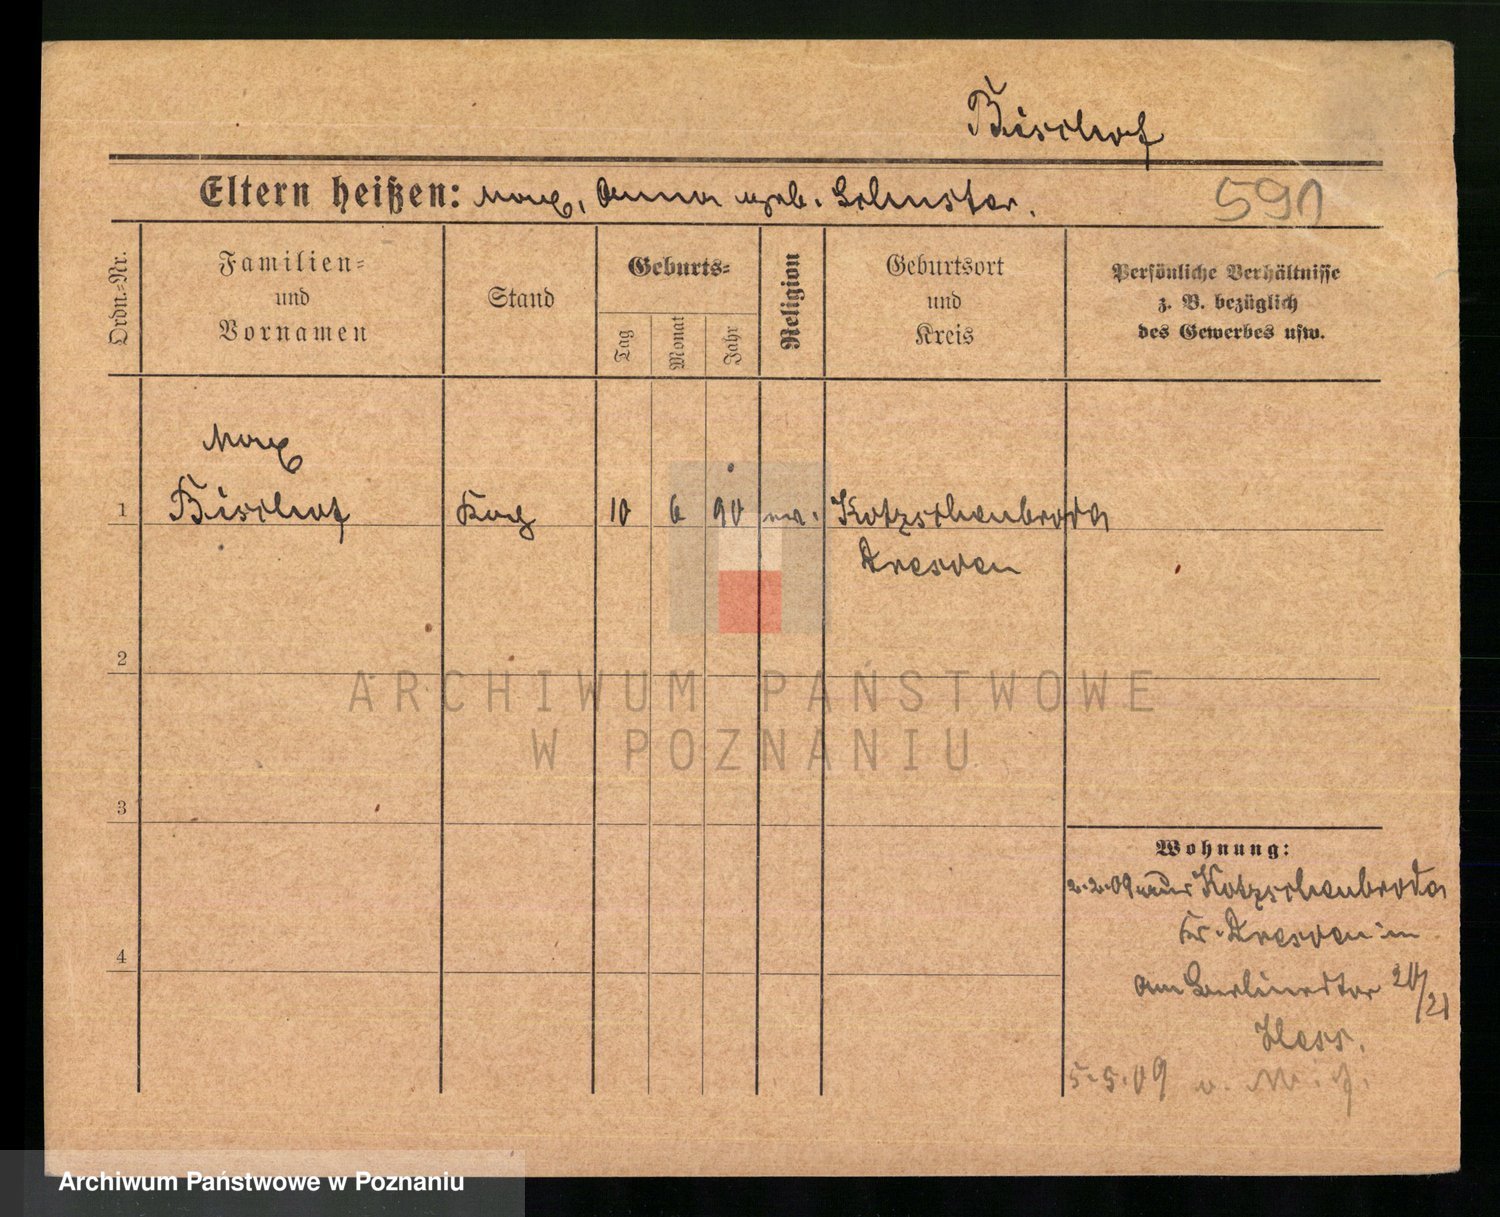 Bischof
Eltern heißen: Max, Anna geb.
591
Ordn.-Nr.
Familien-
und
Vornamen
Stand
Geburts-
Tag
Monat
Jahr
Religion
Geburtsort
und
Kreis
Persönliche Verhältnisse
z. B. bezüglich
des Gewerbes usw.
Max
1 Bischof Koch 10 6 90 ev. Kotzschenbroda
Dresden
2
ARCHIWUM PAŃSTWOWE
W POZNANIU
3
Wohnung:
2.2.09 aus Kotzschenbroda
Kr. Dresden in
am Berlinertor 20/21
Hess.
4
5.5.09 v. M. J.
Archiwum Państwowe w Poznaniu